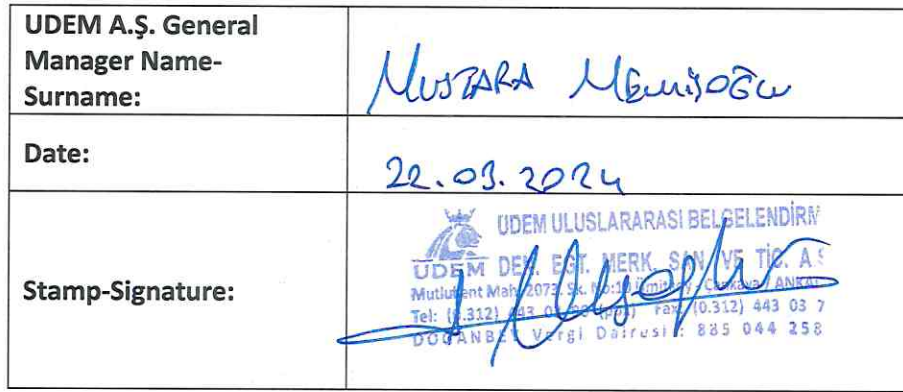 UDEM A.Ş. General
Manager Name-
Surname:
MUSTAFA MEMİŞOĞLU
Date:
22.03.2024
Stamp-Signature:
UDEM ULUSLARARASI BELGELENDİRM
UDEM DEN. EĞT. MERK. SAN. VE TİC. A.Ş
Mutlukent Mah. 2073. Sk. No:10 Ümitköy - Çankaya / ANKA
Tel: (0.312) 443 03 90 (pbx) Fax: (0.312) 443 03 7
DOĞANBEY Vergi Dairesi: 885 044 258